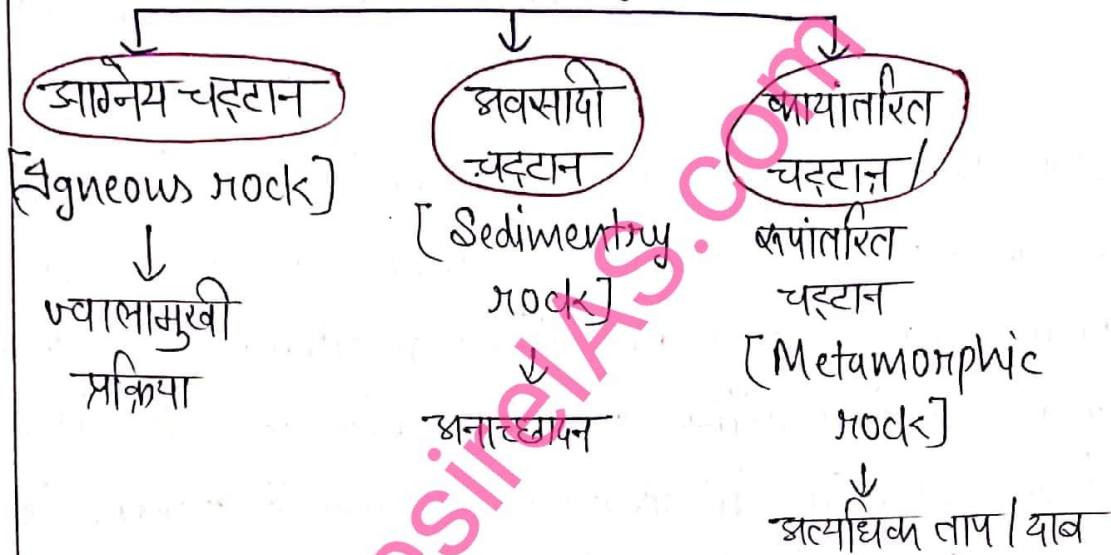 आग्नेय चट्टान
[Igneous rock]
ज्वालामुखी
प्रक्रिया
अवसादी
चट्टान
[Sedimentry
rock]
अनाच्छादन
कायांतरित
चट्टान /
रूपांतरित
चट्टान
[Metamorphic
rock]
अत्यधिक ताप / दाब
sirelAS.com